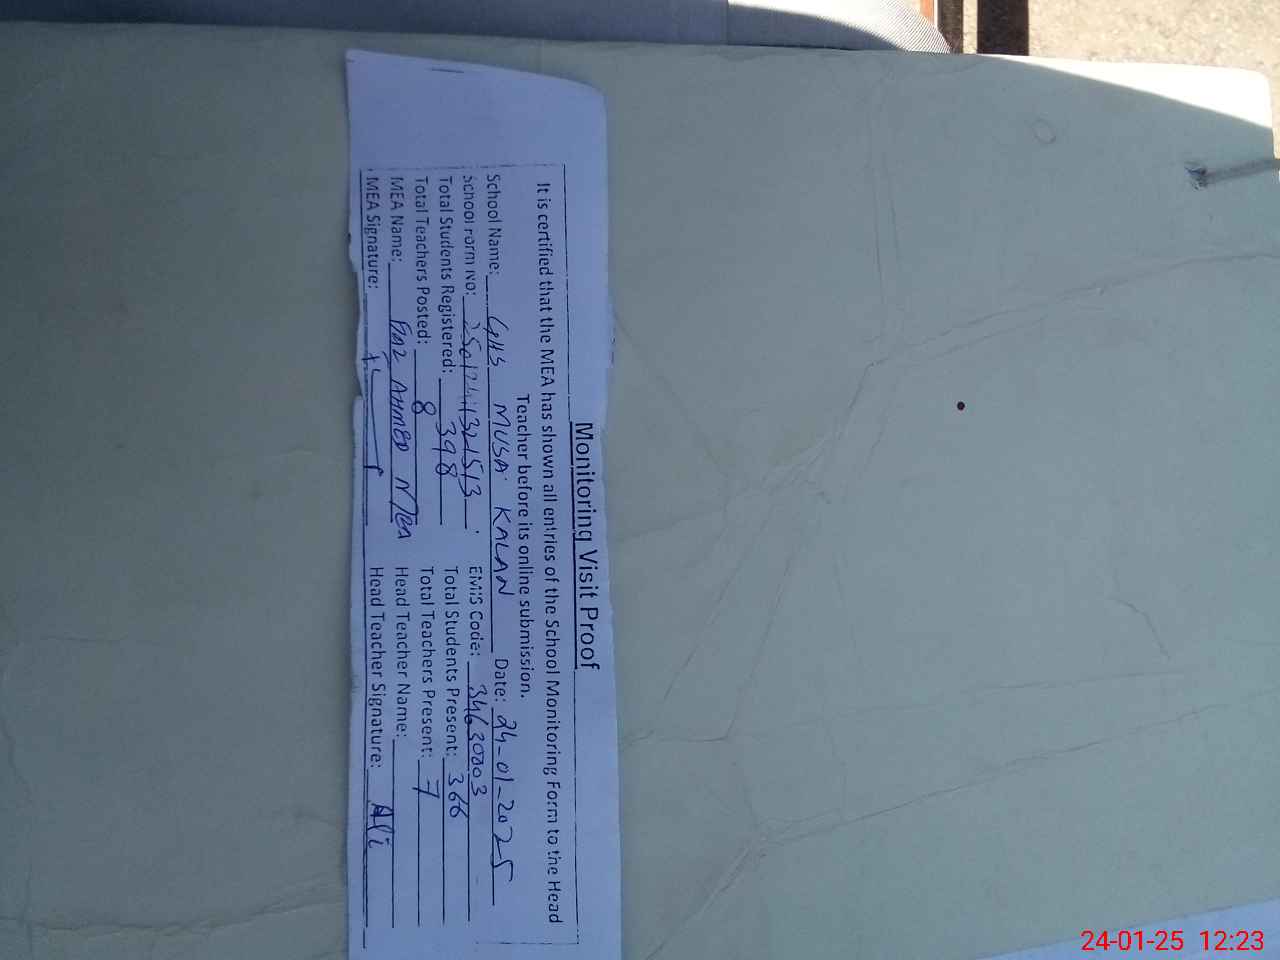 Monitoring Visit Proof
It is certified that the MEA has shown all entries of the School Monitoring Form to the Head
Teacher before its online submission.
School Name: GHS MUSA KALAN Date: 24-01-2025
School Form No: EMIS Code: 34630003
Total Students Registered: 398 Total Students Present: 366
Total Teachers Posted: 8 Total Teachers Present: 7
MEA Name: AHMED MEA Head Teacher Name:
MEA Signature: Head Teacher Signature: Ali
24-01-25 12:23